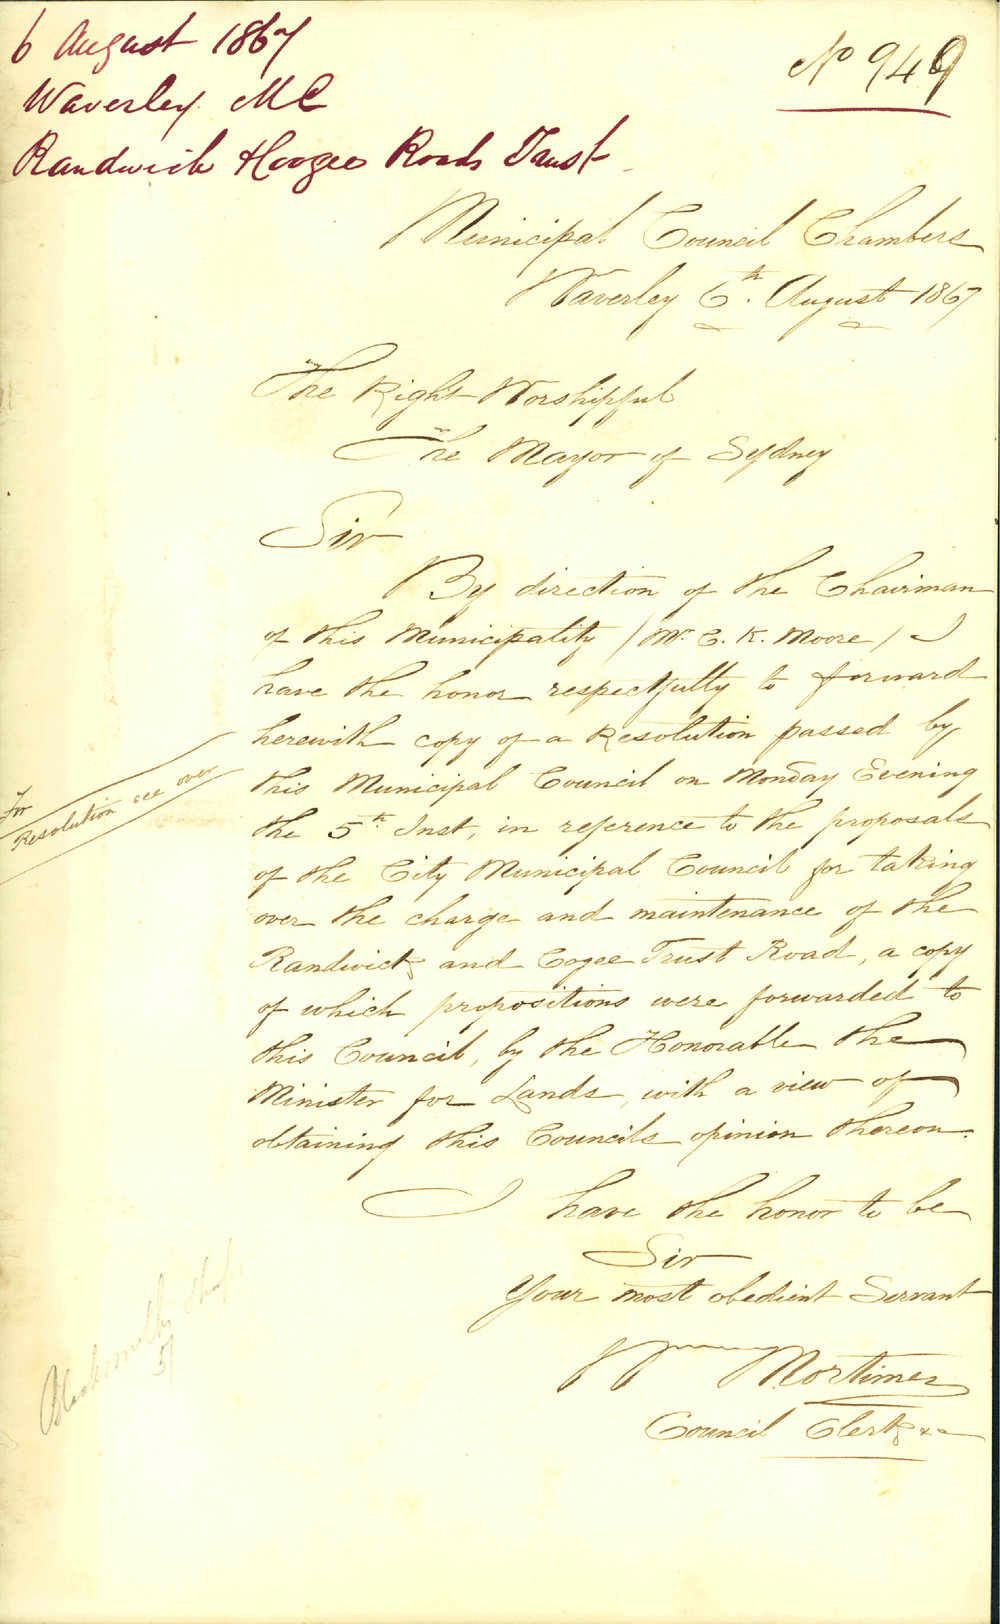 6 August 1867
Waverley MC
Randwick & Coogee Roads Trust
No 949
Municipal Council Chambers
Waverley 6th. August 1867
The Right Worshipful
The Mayor of Sydney
Sir
By direction of the Chairman
of this Municipality / Mr. C. K. Moore / I
have the honor respectfully to forward
herewith copy of a Resolution passed by
this Municipal Council on Monday Evening
the 5th Inst, in reference to the proposals
of the City Municipal Council for taking
over the charge and maintenance of the
Randwick and Cogee Trust Road, a copy
of which propositions were forwarded to
this Council, by the Honorable the
Minister for Lands, with a view of
obtaining this Councils opinion thereon.
I have the honor to be
Sir
Your most obedient Servant
Wm Mortimer
Council Clerk &c
For
Resolution see over
Blacksmiths Shop
51